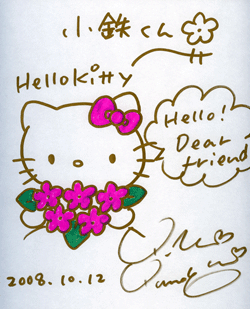 小鉄くん
Hello Kitty
Hello!
Dear
friend
2008.10.12